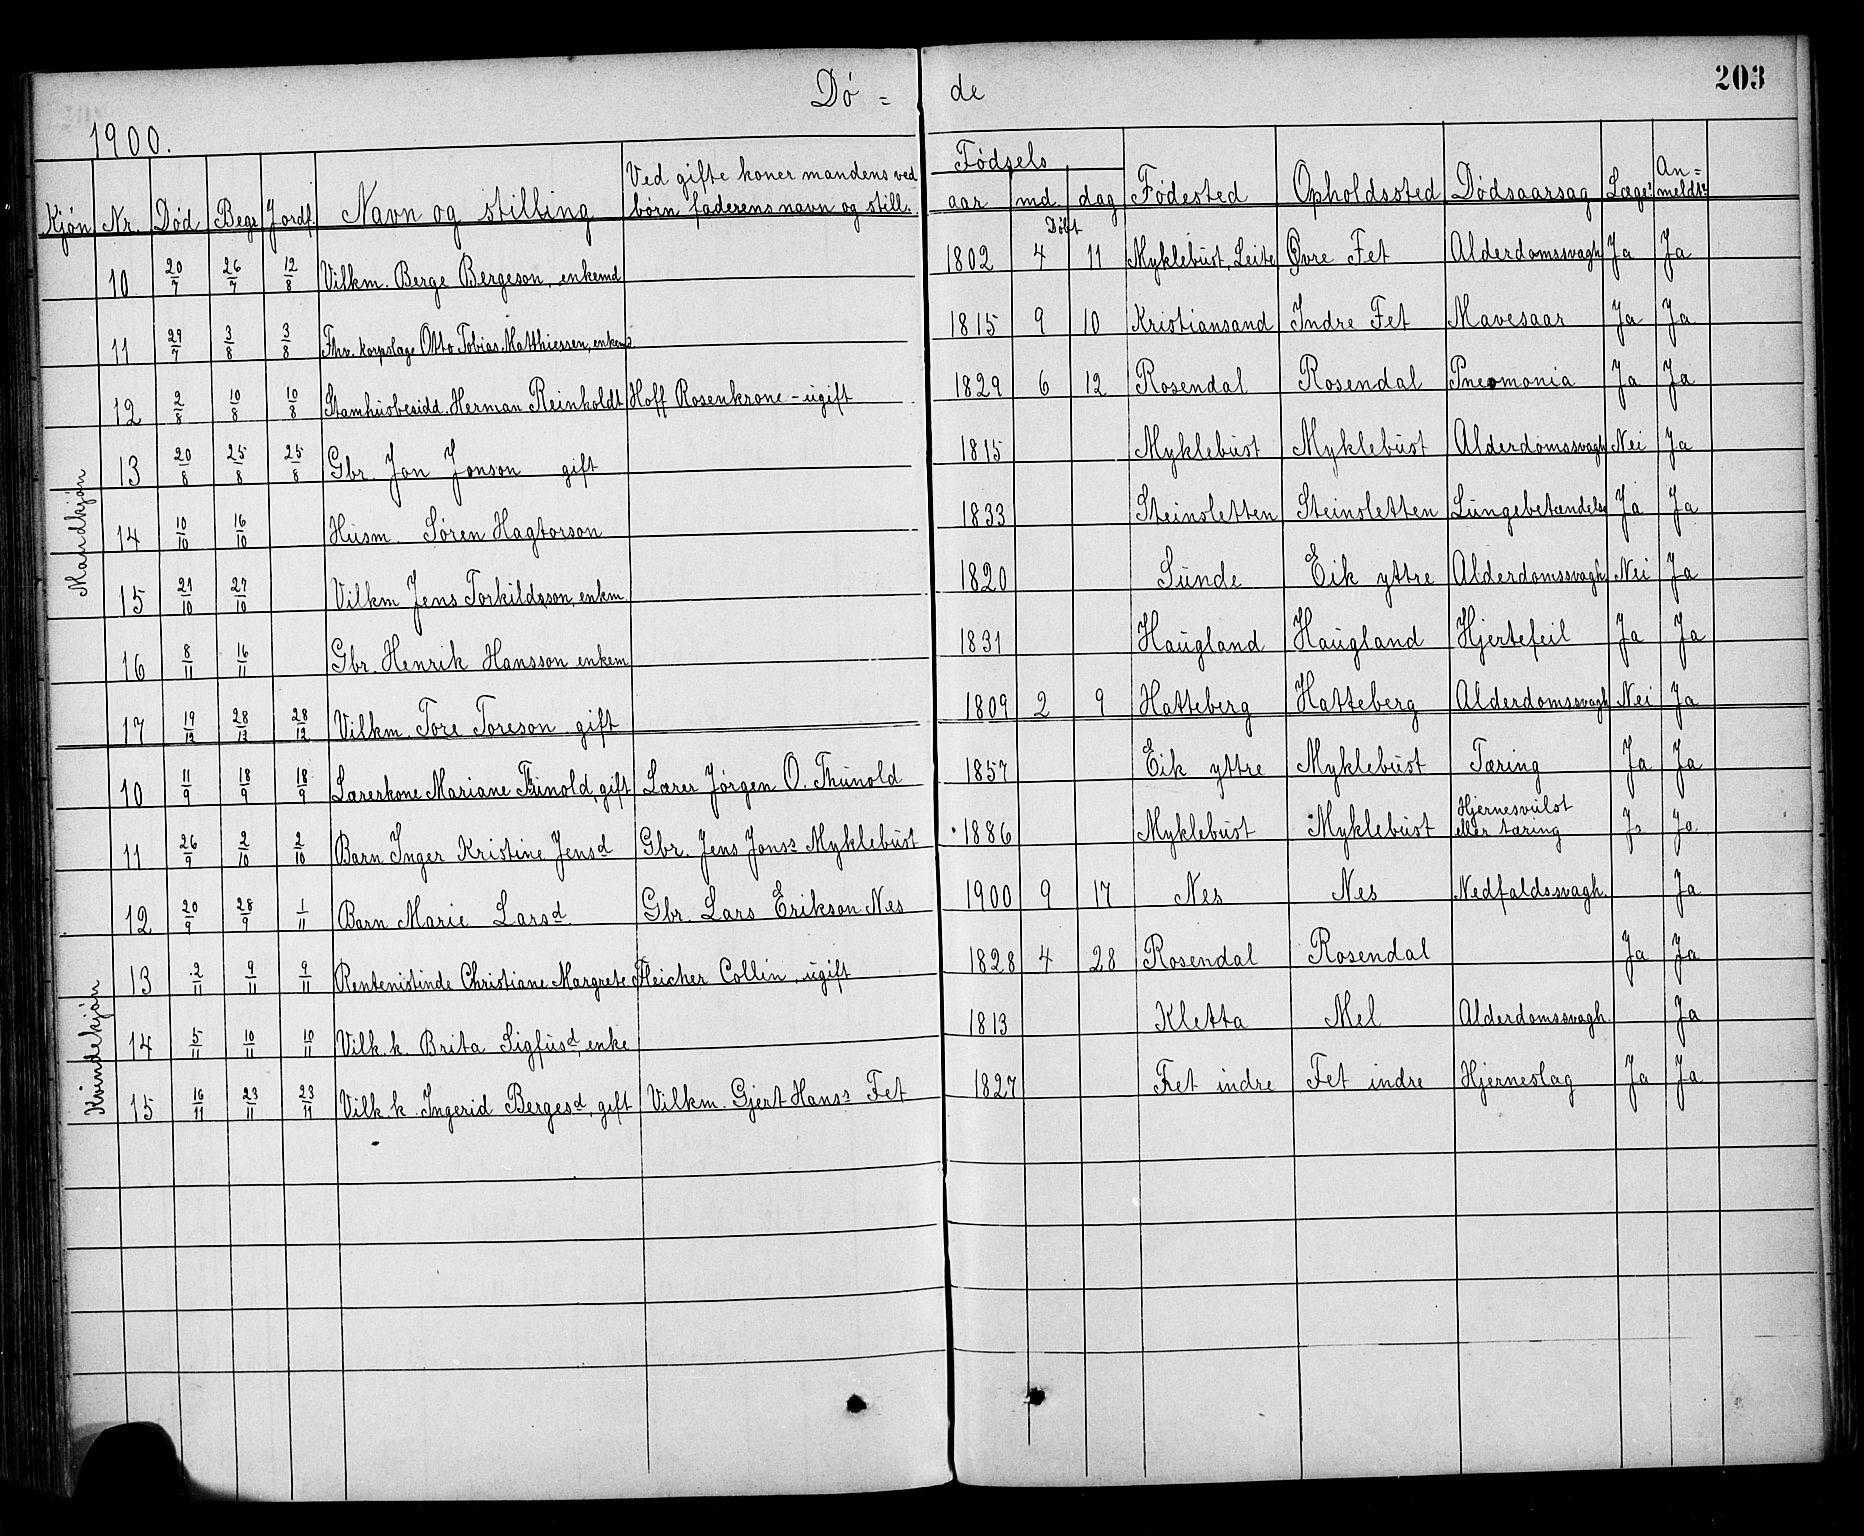 Dø = de
203
1900.
Kjøn Nr. Død Begr. Jordf. Navn og stilling Ved gifte koner mandens ved børn faderens navn og still. Fødsels aar md. dag Fødested Opholdssted Dødsaarsag Læge? An=meldt?
Døbt
Mandkjøn
10 20/7 26/7 12/8 Vilkm. Berge Bergeson, enkemd 1802 4 11 Myklebust, Leite Øvre Fet Alderdomssvagh Ja Ja
11 29/7 3/8 3/8 Fhv. korpslæge Otto Tobias Matthiessen, enkem. 1815 9 10 Kristiansand Indre Fet Mavesaar Ja Ja
12 2/8 10/8 10/8 Stamhusbesidd. Herman Reinholdt Hoff Rosenkrone - ugift 1829 6 12 Rosendal Rosendal Pneomonia Ja Ja
13 20/8 25/8 25/8 Gbr. Jon Jonson gift 1815 Myklebust Myklebust Alderdomssvagh Nei Ja
14 10/10 16/10 Husm. Søren Hagtorson 1833 Steinsletten Steinsletten Lungebetændelse Ja Ja
15 21/10 27/10 Vilkm Jens Torkildsson, enkm. 1820 Sunde Eik yttre Alderdomssvagh Nei Ja
16 8/11 16/11 Gbr. Henrik Hansson enkem 1831 Haugland Haugland Hjertefeil Ja Ja
17 19/12 28/12 28/12 Vilkm. Tore Toreson gift 1809 2 9 Hatteberg Hatteberg Alderdomssvagh Nei Ja
Kvindekjøn
10 11/9 18/9 18/9 Lærerkone Mariane Thunold, gift Lærer Jørgen O. Thunold 1857 Eik yttre Myklebust Tæring Ja Ja
11 26/9 2/10 2/10 Barn Inger Kristine Jensd Gbr. Jens Jonss Myklebust 1886 Myklebust Myklebust Hjernesvulst eller tæring Ja Ja
12 20/9 28/9 1/11 Barn Marie Larsd Gbr. Lars Erikson Nes 1900 9 17 Nes Nes Nedfaldssvagh. Ja
13 2/11 9/11 9/11 Rentenistinde Christiane Margrete Fleicher Collin, ugift 1828 4 28 Rosendal Rosendal Ja Ja
14 5/11 10/11 10/11 Vilk. k. Brita Sigfusd, enke 1813 Kletta Mel Alderdomssvagh. Ja
15 16/11 23/11 23/11 Vilk k. Ingerid Bergesd, gift Vilkm. Gjert Hanss Fet 1827 Fet indre Fet indre Hjerneslag Ja Ja